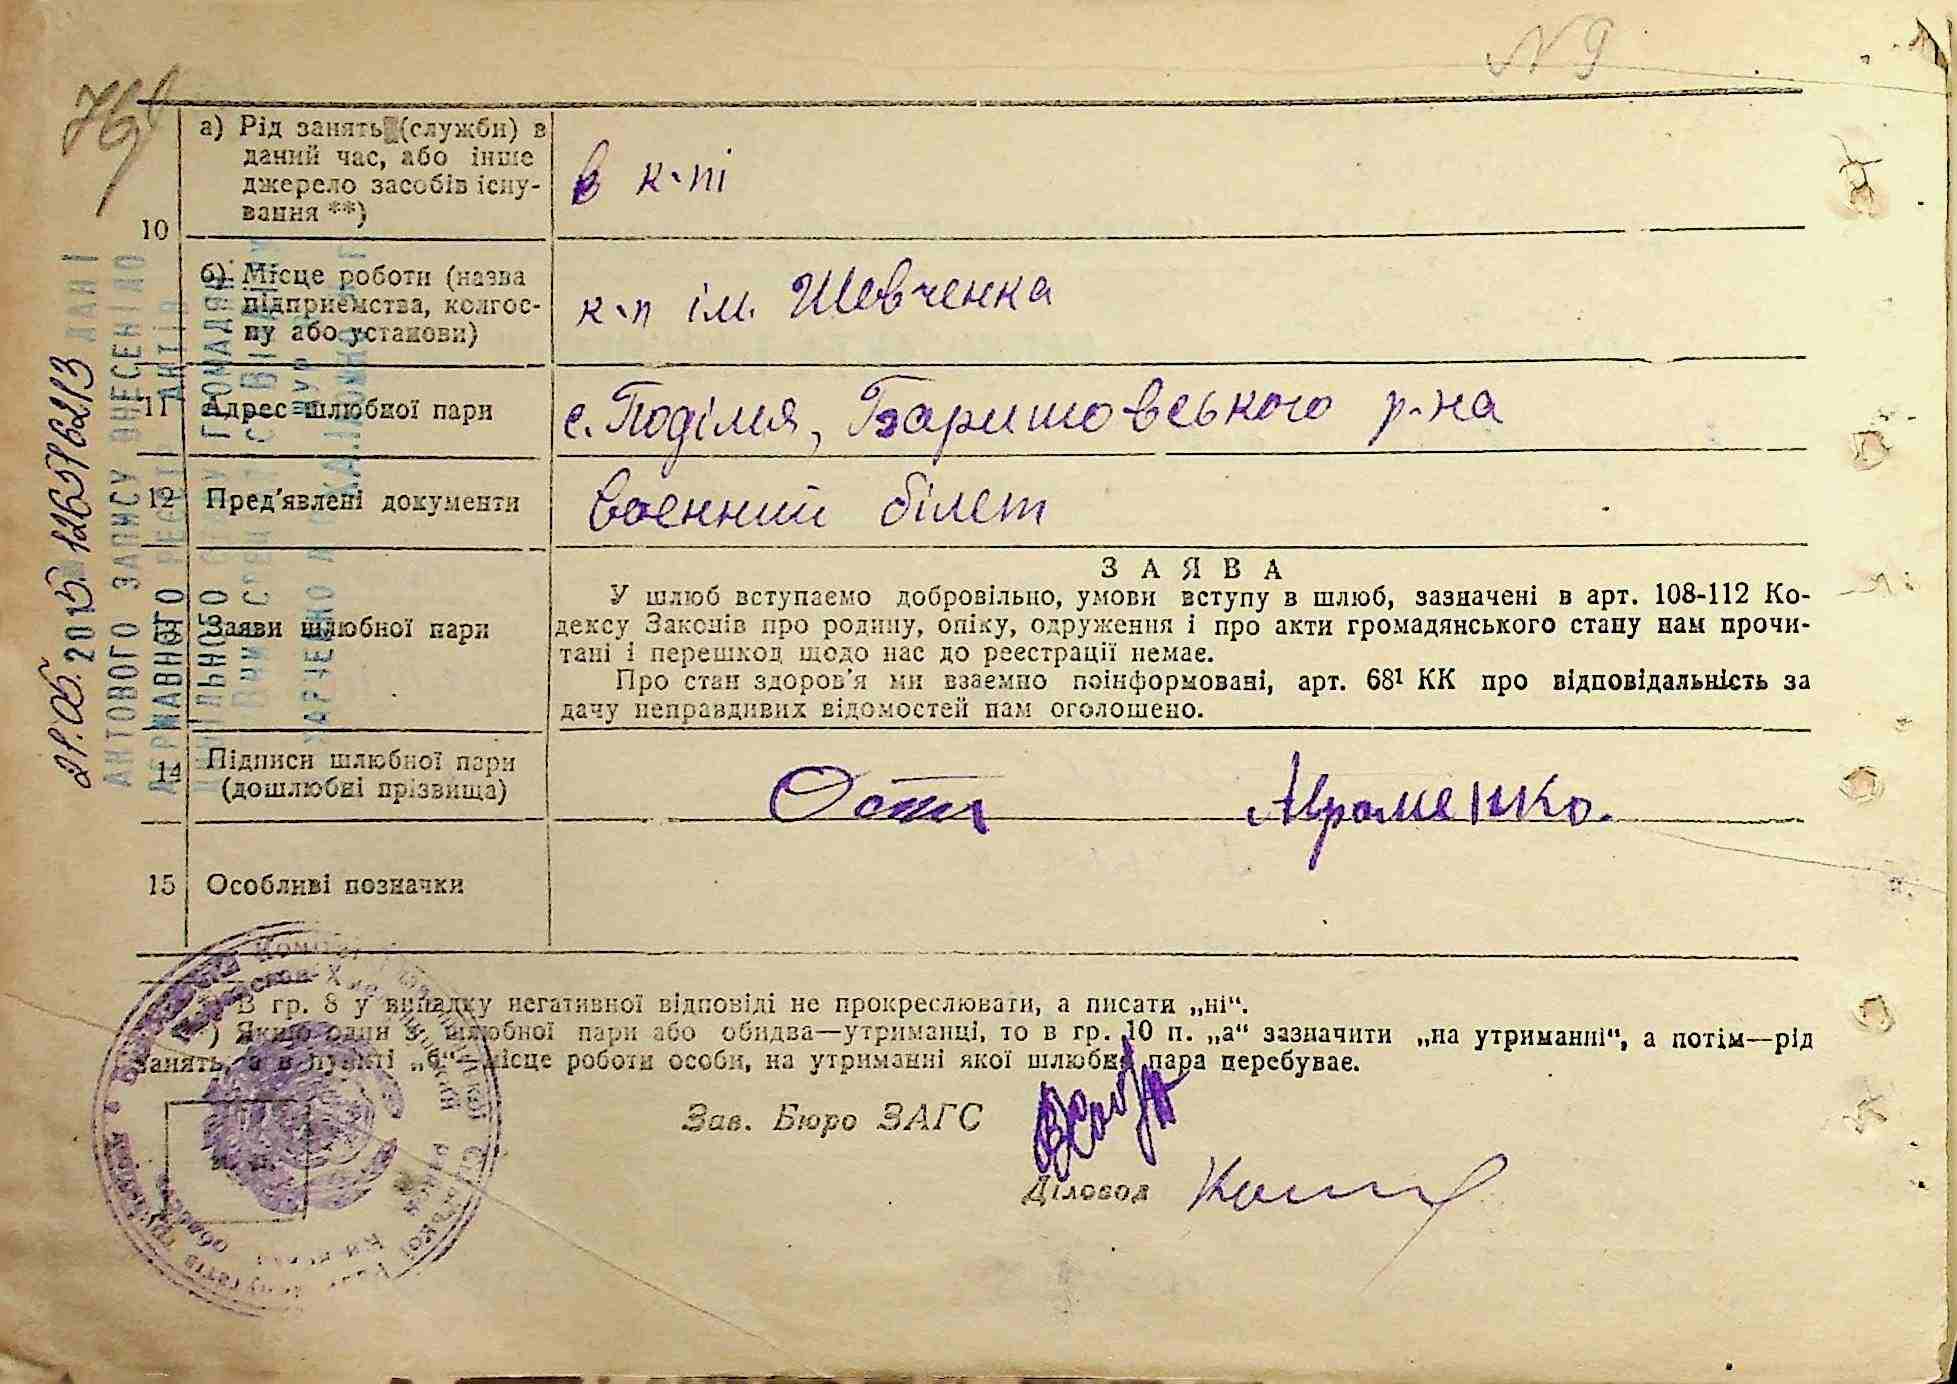 N 9
а) Рід занять (служби) в
даний час, або інше
джерело засобів існу-
вання **)
в к-пі
10
б) Місце роботи (назва
підприємства, колгос-
пу або установи)
к-п ім. Шевченка
11 Адрес шлюбної пари
с. Поділля, Баришовського р-на
12 Пред'явлені документи
воєнний білет
ЗАЯВА
У шлюб вступаємо добровільно, умови вступу в шлюб, зазначені в арт. 108-112 Ко-
дексу Законів про родину, опіку, одруження і про акти громадянського стану нам прочи-
тані і перешкод щодо нас до реєстрації немає.
Про стан здоров'я ми взаємно поінформовані, арт. 68¹ КК про відповідальність за
дачу неправдивих відомостей нам оголошено.
Заяви шлюбної пари
14 Підписи шлюбної пари
(дошлюбні прізвища)
Авраменко.
15 Особливі позначки
В гр. 8 у випадку негативної відповіді не прокреслювати, а писати „ні“.
) Якщо один з шлюбної пари або обидва—утриманці, то в гр. 10 п. „а“ зазначити „на утриманні“, а потім—рід
занять, а в пункті „б“ місце роботи особи, на утриманні якої шлюбна пара перебуває.
Зав. Бюро ЗАГС
Діловод
АКТОВОГО ЗАПИСУ ВНЕСЕНІ ДО
ДЕРЖАВНОГО РЕЄСТРУ АКТІВ
ЦИВІЛЬНОГО СТАНУ ГРОМАДЯН